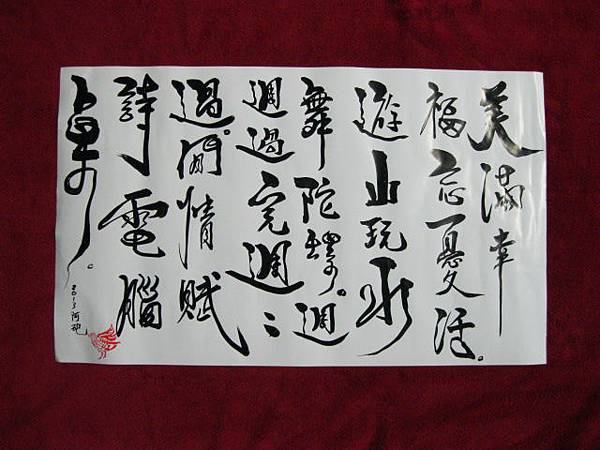 美滿幸
福忘憂活。
遊山玩水
舞陀螺。週
週過完週〻
過。閒情賦
詩電腦
桌。
2013 阿